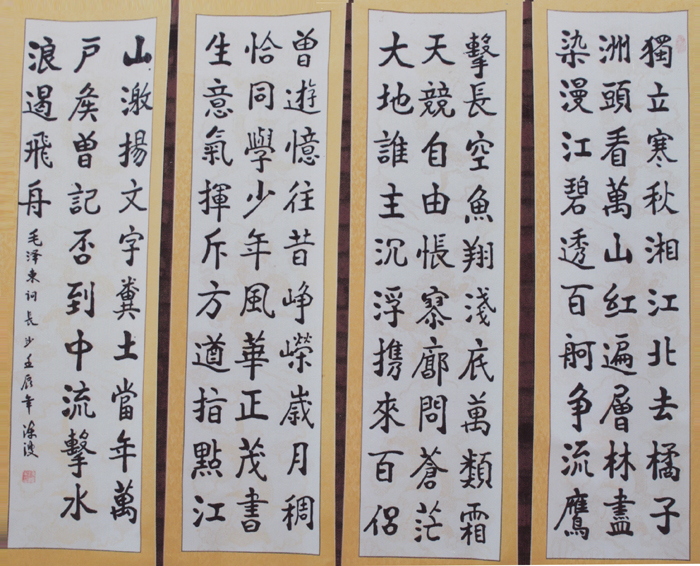 獨立寒秋湘江北去橘子
洲頭看萬山紅遍層林盡
染漫江碧透百舸争流鷹
擊長空魚翔淺底萬類霜
天競自由悵寥廓問蒼茫
大地誰主沉浮携來百侶
曾遊憶往昔崢嶸歲月稠
恰同學少年風華正茂書
生意氣揮斥方遒指點江
山激揚文字糞土當年萬
户矦曾記否到中流擊水
浪遏飛舟
毛澤東词長沙